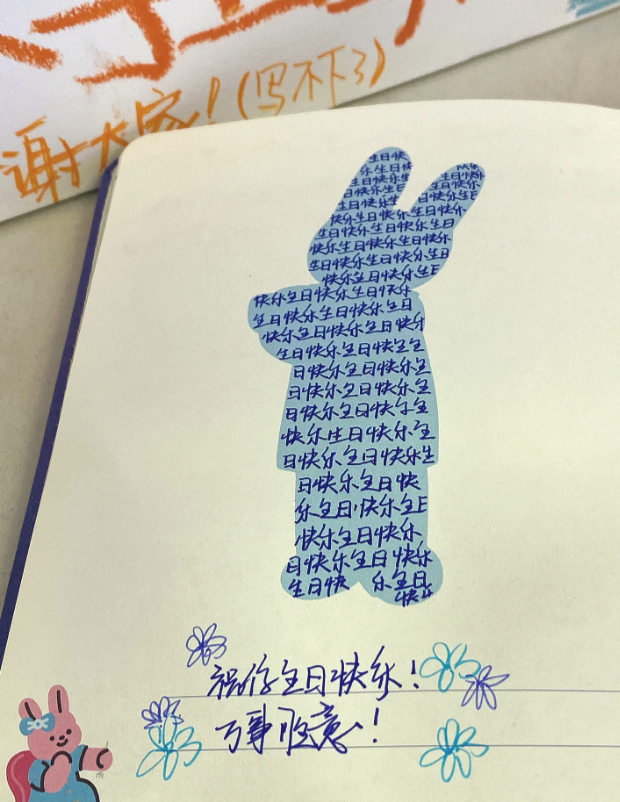 谢大家！(写不下了)
生日快
乐生日快
生日快乐生
日快乐生日
生日快乐
快乐
生日快乐
生日快乐
快乐生日快乐生日快乐
生日快乐生日快乐生日
快乐生日快乐生日快乐
生日快乐生日快乐生日
快乐生日快乐生日
快乐生日快乐生日快乐
生日快乐生日快乐生日
快乐生日快乐生日快乐
生日快乐生日快生生
日快乐生日快乐生
日快乐生日快乐生
日快乐生日快乐生
快乐生日快乐生
日快乐生日快乐生
日快乐生日快
乐生日快乐生日
快乐生日快乐
日快乐生日快乐
生日快 乐生日
快乐
祝你生日快乐！
万事胜意！